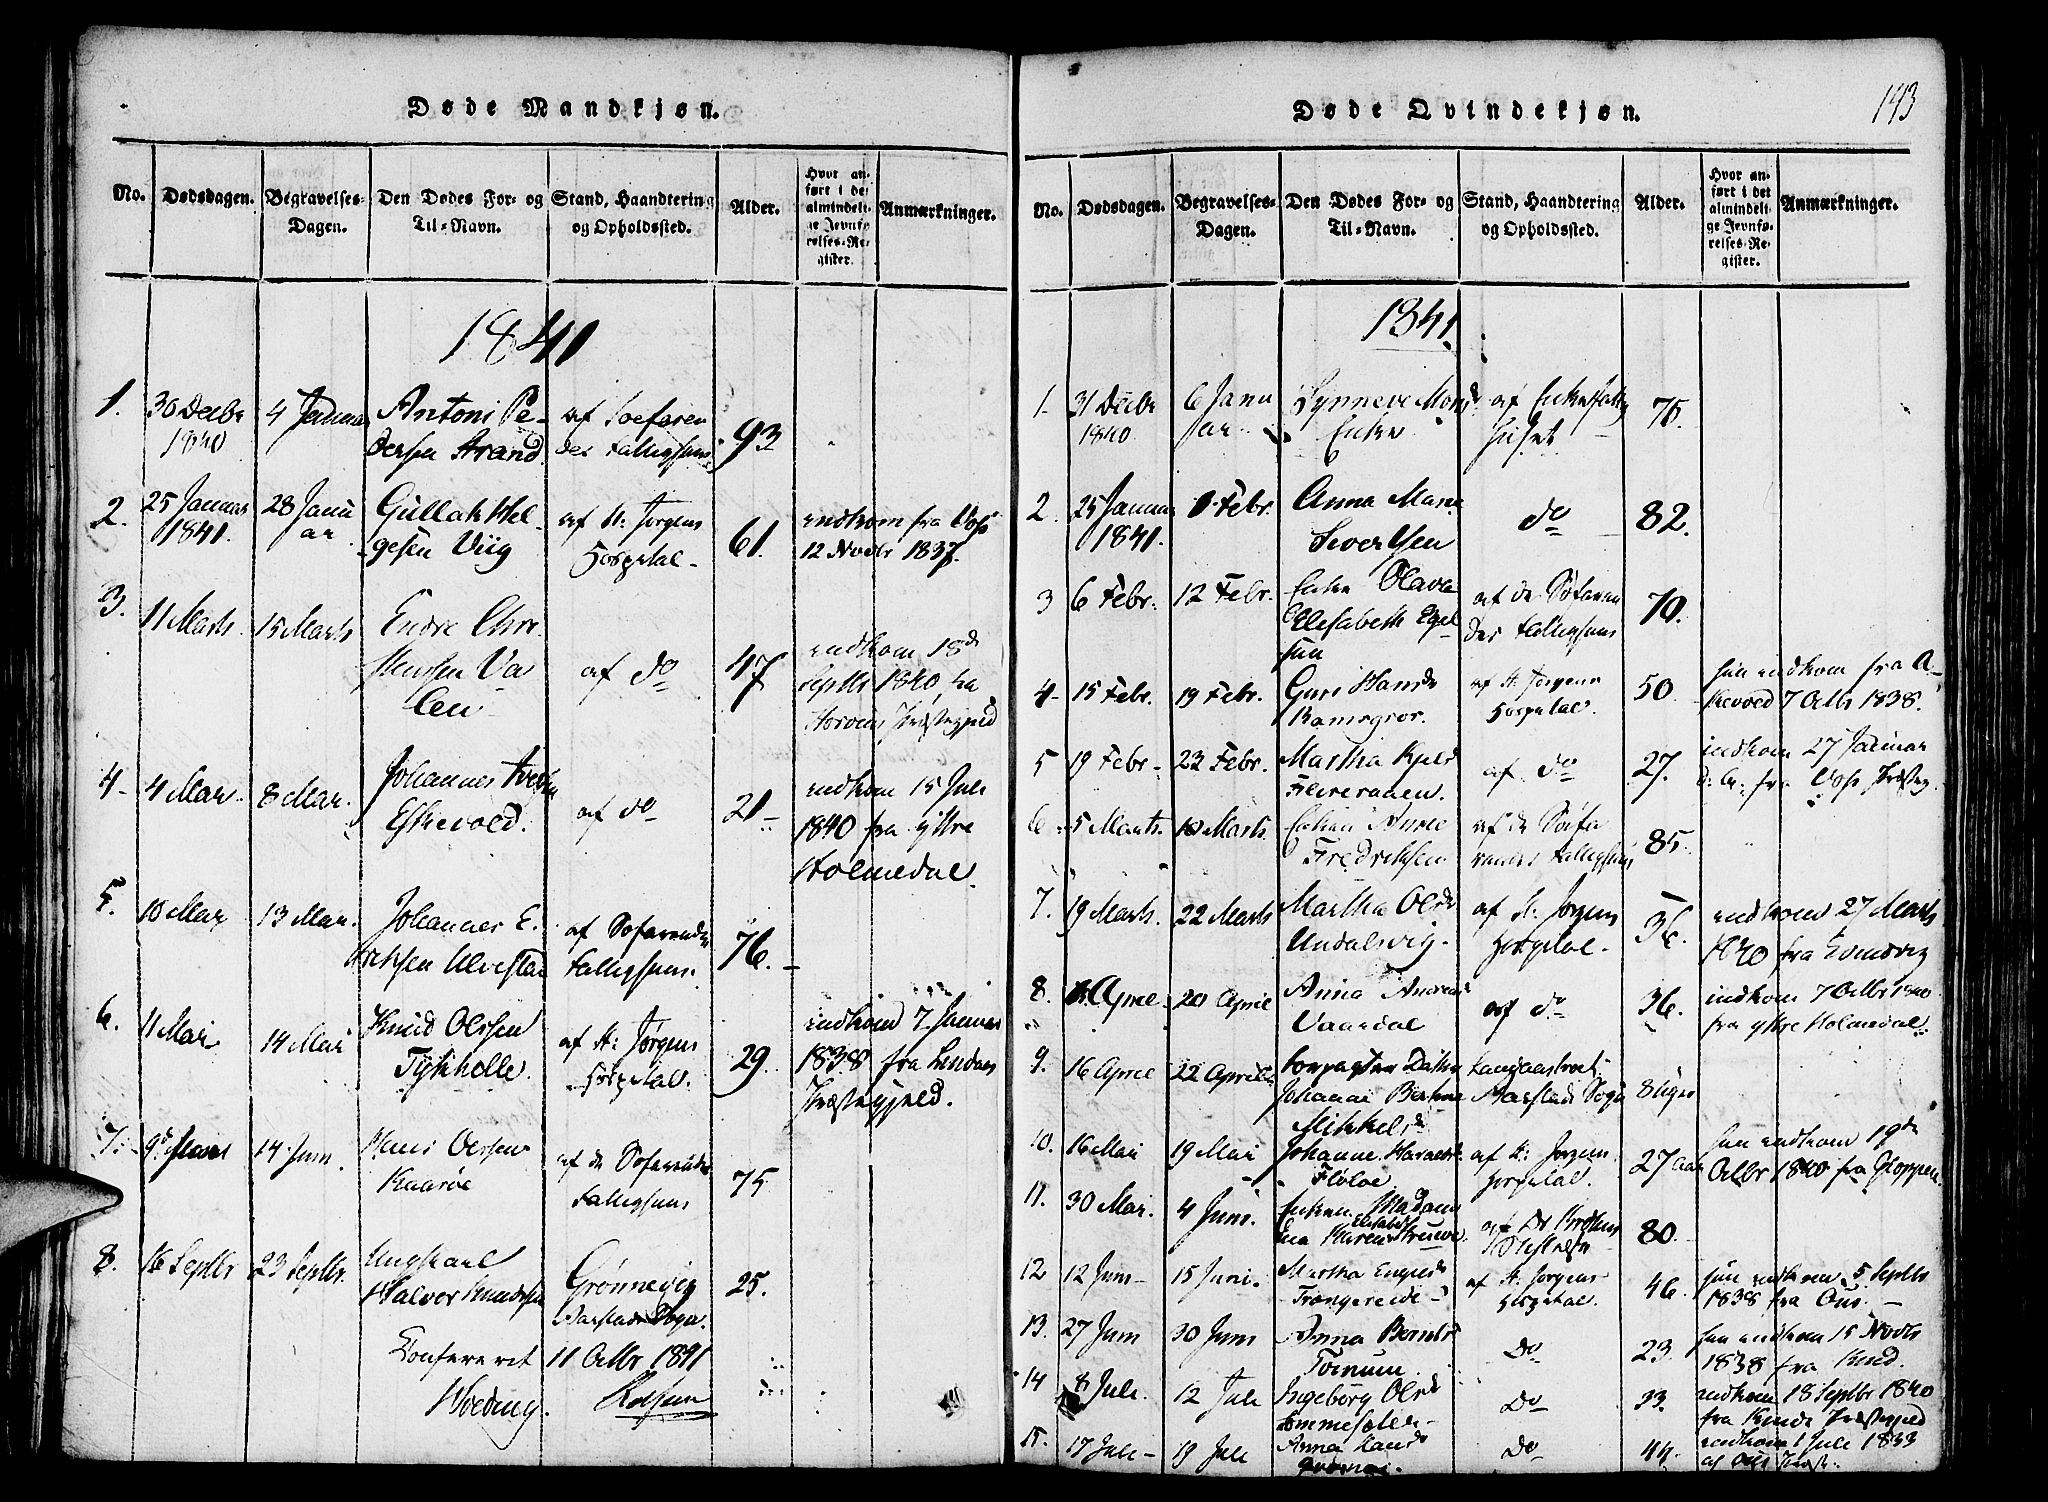 Døde Mandkjøn.
No. Dødsdagen. Begravelses-Dagen. Den Dødes For- og Til-Navn. Stand, Haandtering og Opholdssted. Alder. Hvor anført i det almindelige Jevnførelses-Register. Anmærkninger.
1841
1. 30 Decbr 4 Januar Antoni Pe- af Soefaren
1840 dersen Strand des Fattighuus 93
2. 25 Januar 28 Janu Gullak Hel- af St: Jørgens 61. indkom fra Vos
1841. ar gesen Viig Hospital - 12 Novbr 1837.
3. 11 Marts. 15 Marts Endre Chri
stensen Va af do 47 indkom 18de
len Septbr 1840 fra
Præstegjeld
4- 4 Mai 8 Mai. Johannes indkom 15 Juli
Eskevold. af do 21- 1840 fra Yttre
Holmedal.
5. 10 Mai 13 Mai. Johannes E. af Søfarende
richsen Ulvestad Fattighuus. 76.
6. 11 Mai 14 Mai Knud Olssen af St: Jørgens indkom 7 Januar
Tykhelle. Hospital. 29. 1838 fra Lindaas
Præstegjeld.
7. 14 Juni. Olssen af de Søfarende
Kaarøe Fattighuus 75
8. 16 Septbr 23 Septbr. Ungkarl
Halver Knudsen Grønnevig 25.
Aarstads Sogn.
Confereret 11 Octbr 1841
Døde Qvindekjøn.
143
No. Dødsdagen. Begravelses-Dagen. Den Dødes For- og Til-Navn. Stand, Haandtering og Opholdssted. Alder. Hvor anført i det almindelige Jevnførelses-Register. Anmærkninger.
1841.
1- 31 Decbr 6 Janu Synneve Monsd. af Enkefattig
1840. ar. Enke huset 75.
2. 25 Januar 1 Febr. Anna Marie
1841. Sivertsen do 82.
3 6 Febr. 12 Febr. Enke Olava af de Søfaren
Elisabeth Egel des Fattighuus 70.
4- 15 Febr. 19 Febr. Guri Hansd. af St. Jørgens 50. hun indkom fra A-
Ramsgror. Hospital. skevold 7 Octbr 1838.
5 19 Febr- 23 Febr. Martha Kjeld af do 27. indkom 27 Januar
d: A: fra Vos Præsteg.
6. 5 Marts. 10 Marts. Enken Anne af de Søfa
Fredriksen rendes Fattighuus 85.
7. 19 Marts. 22 Marts Martha Olsd. af St: Jørgens 36. indkom 27 Marts
Undalsvig- Hospital. 1840 fra Evindvig
8. April. 20 April Anna Andreas af do 36. indkom 7 Octbr 1840
Vaardal fra Yttre Holmedal
9. 16 April 22 April Forpagter Datter
Johanne Aarstads Sogn 8 Uger
Mikkelsd
10. 16 Mai 19 Mai Johanne Haraldsd. af St: Jørgens 27 aar hun indkom 19de
Fløloe Hospital. Octbr 1840 fra Gloppen.
11. 30 Mai. 4 Juni. Enken Madame
Karen Elisabeth af 80.
12 12 Juni- 15 Juni. Martha af St. Jørgens 46. hun indkom 5 Septbr
Trængereide- Hospital. 1838 fra Ous.
13. 27 Juni 30 Juni Anna Berntsd. Do 23. hun indkom 15 Novbr
1838 fra Kind.
14 8 Juli. 12 Juli Ingeborg Olsd Do 33. indkom 18 Septbr 1840
fra Kinds Præstegjeld
15. 17 Juli- 19 Juli Anna Do 44. indkom 1 Juli 1833